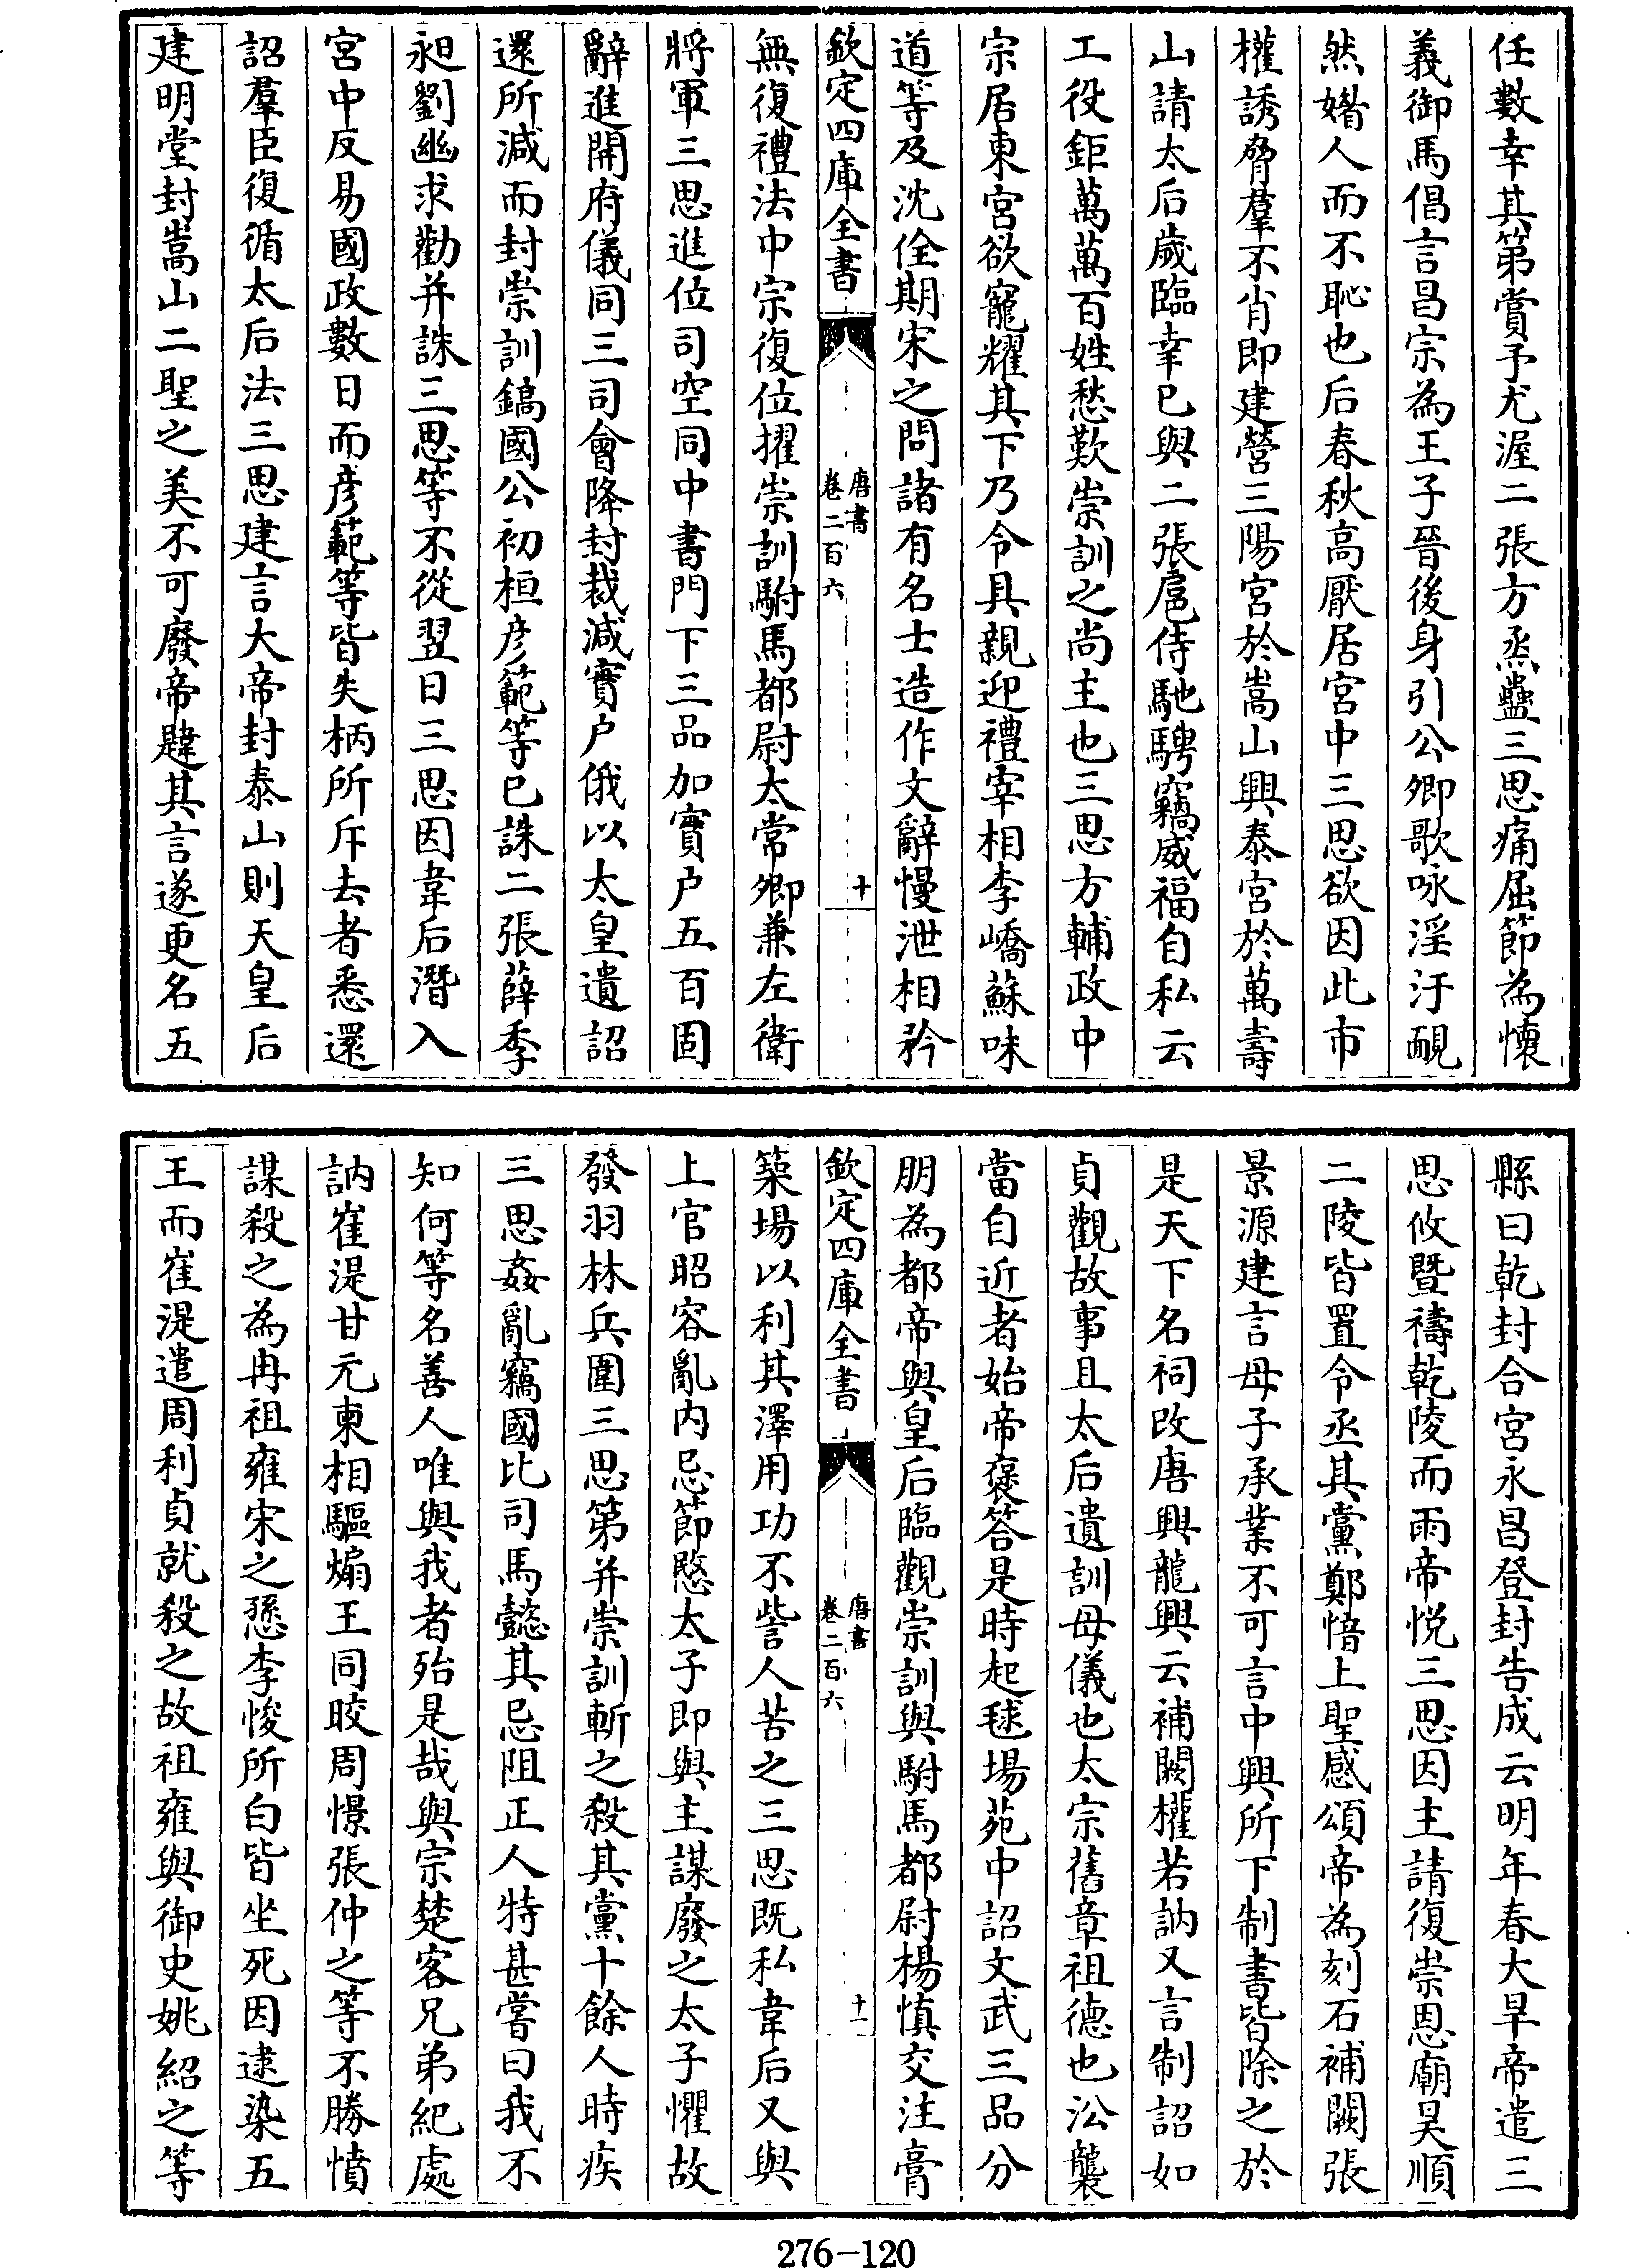 任數幸其第賞予尤渥二張方烝蠱三思痛屈節為懷
義御馬倡言昌宗為王子晉後身引公卿歌咏淫汙靦
然媚人而不恥也后春秋高厭居宮中三思欲因此市
權誘脅羣不肖即建營三陽宮於嵩山興泰宮於萬壽
山請太后歲臨幸已與二張扈侍馳騁竊威福自私云
工役鉅萬萬百姓愁歎崇訓之尚主也三思方輔政中
宗居東宮欲寵耀其下乃令具親迎禮宰相李嶠蘇味
道等及沈佺期宋之問諸有名士造作文辭慢泄相矜
欽定四庫全書 唐書卷二百六 十
無復禮法中宗復位擢崇訓駙馬都尉太常卿兼左衛
將軍三思進位司空同中書門下三品加實户五百固
辭進開府儀同三司會降封裁減實户俄以太皇遺詔
還所減而封崇訓鎬國公初桓彥範等已誅二張薛季
昶劉幽求勸并誅三思等不從翌日三思因韋后潛入
宮中反易國政數日而彥範等皆失柄所斥去者悉還
詔羣臣復循太后法三思建言大帝封泰山則天皇后
建明堂封嵩山二聖之美不可廢帝韙其言遂更名五
縣曰乾封合宮永昌登封告成云明年春大旱帝遣三
思攸暨禱乾陵而雨帝悅三思因主請復崇恩廟昊順
二陵皆置令丞其黨鄭愔上聖感頌帝為刻石補闕張
景源建言母子承業不可言中興所下制書皆除之於
是天下名祠改唐興龍興云補闕權若訥又言制詔如
貞觀故事且太后遺訓母儀也太宗舊章祖德也沿襲
當自近者始帝褒答是時起毬場苑中詔文武三品分
朋為都帝與皇后臨觀崇訓與駙馬都尉楊慎交注膏
欽定四庫全書 唐書卷二百六 十一
築場以利其澤用功不訾人苦之三思既私韋后又與
上官昭容亂内忌節愍太子即與主謀廢之太子懼故
發羽林兵圍三思第并崇訓斬之殺其黨十餘人時疾
三思姦亂竊國比司馬懿其忌阻正人特甚嘗曰我不
知何等名善人唯與我者殆是哉與宗楚客兄弟紀處
訥崔湜甘元柬相驅煽王同晈周憬張仲之等不勝憤
謀殺之為冉祖雍宋之愻李悛所白皆坐死因逮染五
王而崔湜遣周利貞就殺之故祖雍與御史姚紹之等
276-120